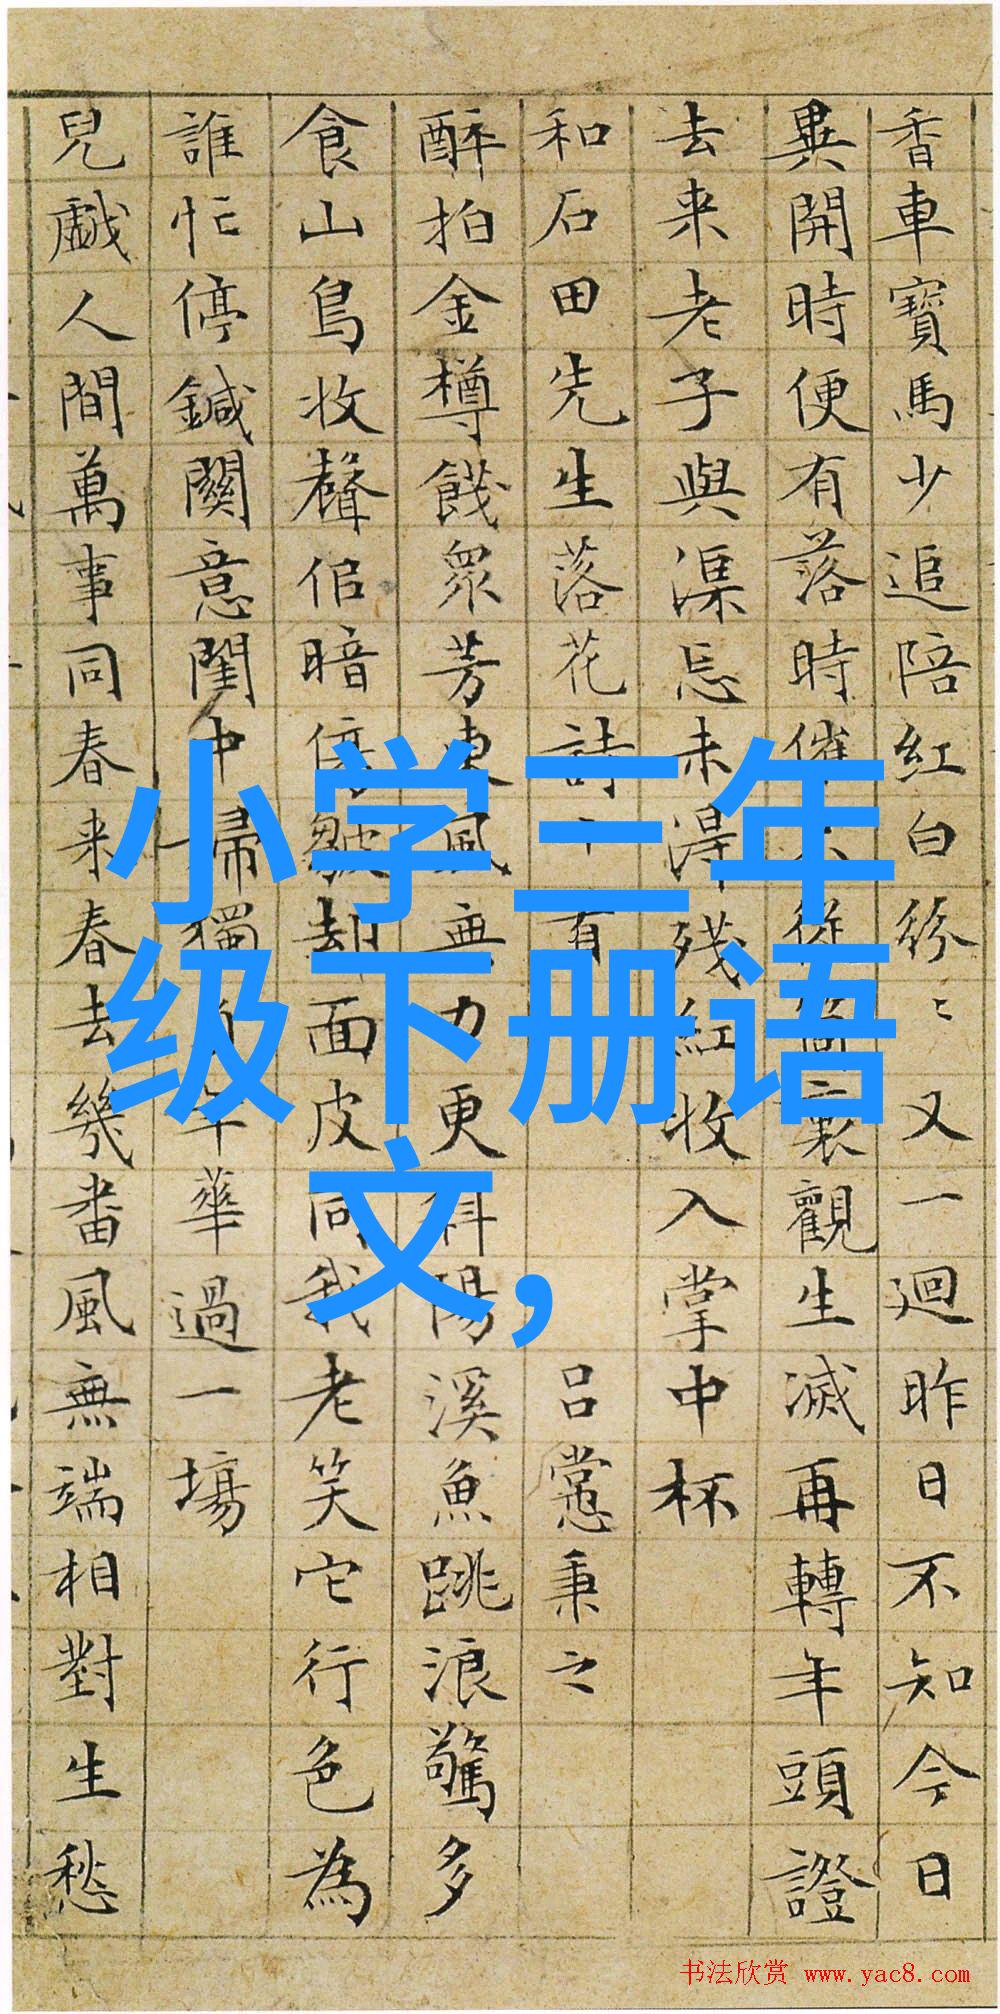 小学三年
级下册语
文,
香車寶馬少追陪紅白紛〻又一迴昨日不知今日
異開時便有落時催從箇裏觀生滅再轉年頭證
去来老子與渠忘未得殘紅收入掌中杯
和石田先生落花詩十有 呂㦂秉之
醉拍金樽餞眾芳東風無力更斜陽溪魚跳浪驚多
食山鳥收聲佀暗傷皺却面皮同我老笑它行色為
誰忙停鍼關意閨中婦獨年華過一場
兒戲人間萬事同春来春去幾番風無端相對生愁
书法欣赏 www.yac8.com